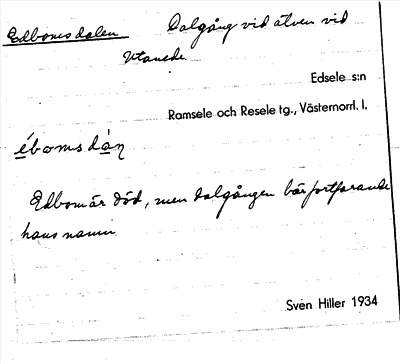 Edbomsdalen Dalgång vid älven vid
Utanede
Edsele s:n
Ramsele och Resele tg., Västernorrl. l.
é̱boms dá̱ṇ
Edbom är död, men dalgången bär fortfarande
hans namn
Sven Hiller 1934